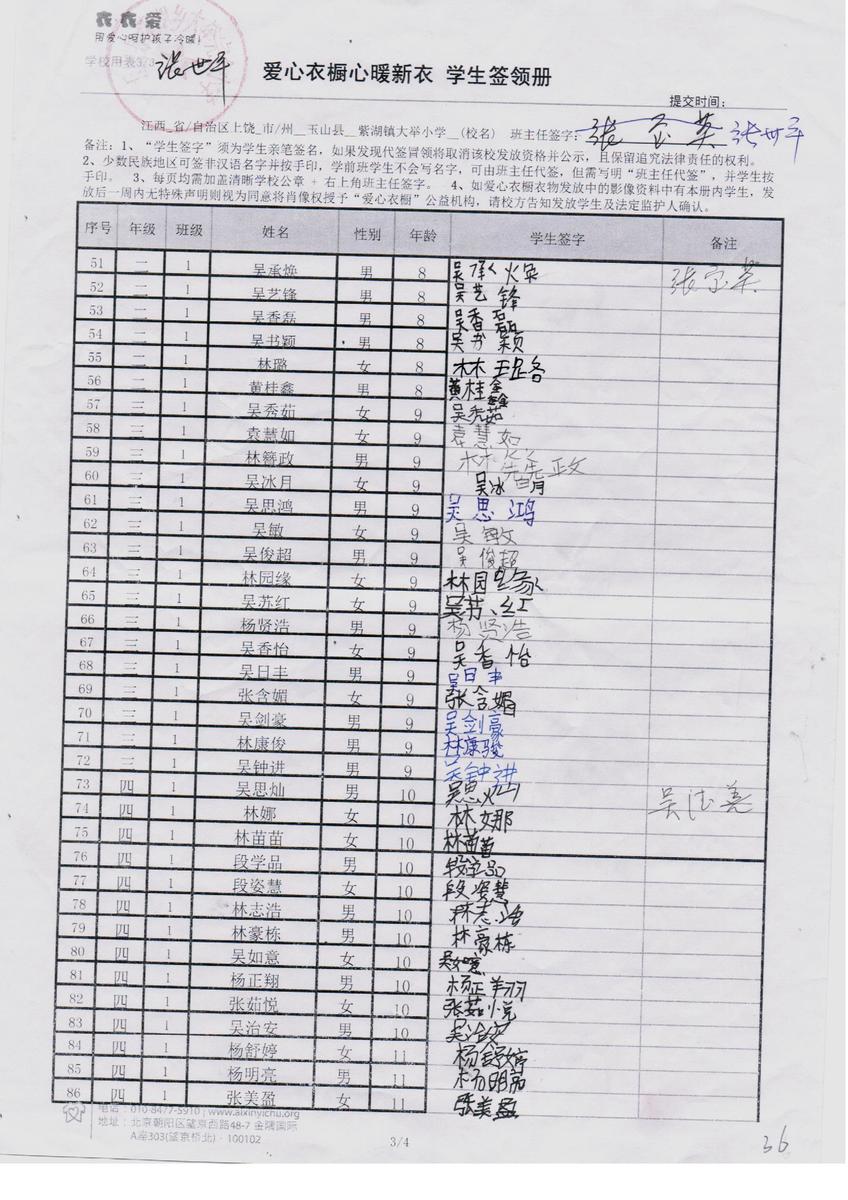 衣衣爱
用爱心呵护孩子冷暖!
学校用表3/3 张世平
爱心衣橱心暖新衣 学生签领册
提交时间:
江西_省/自治区上饶_市/州__玉山县__紫湖镇大举小学__(校名) 班主任签字: 张 英 张世平
备注:1、“学生签字”须为学生亲笔签名,如果发现代签冒领将取消该校发放资格并公示,且保留追究法律责任的权利。
2、少数民族地区可签非汉语名字并按手印,学前班学生不会写名字,可由班主任代签,但需写明“班主任代签”,并学生按
手印。 3、每页均需加盖清晰学校公章 + 右上角班主任签字。 4、如爱心衣橱衣物发放中的影像资料中有本册内学生,发
放后一周内无特殊声明则视为同意将肖像权授予“爱心衣橱”公益机构,请校方告知发放学生及法定监护人确认。
序号 年级 班级 姓名 性别 年龄 学生签字 备注
51 二 1 吴承焕 男 8 吴承焕 张 英
52 二 1 吴艺锋 男 8 吴艺锋
53 二 1 吴香磊 男 8 吴香磊
54 二 1 吴书颖 男 8 吴书颖
55 二 1 林璐 女 8 林璐
56 二 1 黄桂鑫 男 8 黄桂鑫
57 三 1 吴秀茹 女 9 吴秀茹
58 三 1 袁慧如 女 9 袁慧如
59 三 1 林簪政 男 9 林簪政
60 三 1 吴冰月 女 9 吴冰月
61 三 1 吴思鸿 男 9 吴思鸿
62 三 1 吴敏 女 9 吴敏
63 三 1 吴俊超 男 9 吴俊超
64 三 1 林园缘 女 9 林园缘
65 三 1 吴苏红 女 9 吴苏红
66 三 1 杨贤浩 男 9 杨贤浩
67 三 1 吴香怡 女 9 吴香怡
68 三 1 吴日丰 男 9 吴日丰
69 三 1 张含媚 女 9 张含媚
70 三 1 吴剑豪 男 9 吴剑豪
71 三 1 林康俊 男 9 林康骏
72 三 1 吴钟进 男 9 吴钟进
73 四 1 吴思灿 男 10 吴思灿 吴 善
74 四 1 林娜 女 10 林娜
75 四 1 林苗苗 女 10 林苗苗
76 四 1 段学品 男 10 段学品
77 四 1 段姿慧 女 10 段姿慧
78 四 1 林志浩 男 10 林志浩
79 四 1 林豪栋 男 10 林豪栋
80 四 1 吴如意 女 10 吴如意
81 四 1 杨正翔 男 10 杨正翔
82 四 1 张茹悦 女 10 张茹悦
83 四 1 吴治安 男 10 吴治安
84 四 1 杨舒婷 女 11 杨舒婷
85 四 1 杨明亮 男 11 杨明亮
86 四 1 张美盈 女 11 张美盈
电话:010-8477-5910 | www.aixinyichu.org
地址:北京朝阳区望京西路48-7 金隅国际
A座303(望京桥北)·100102
3/4
36